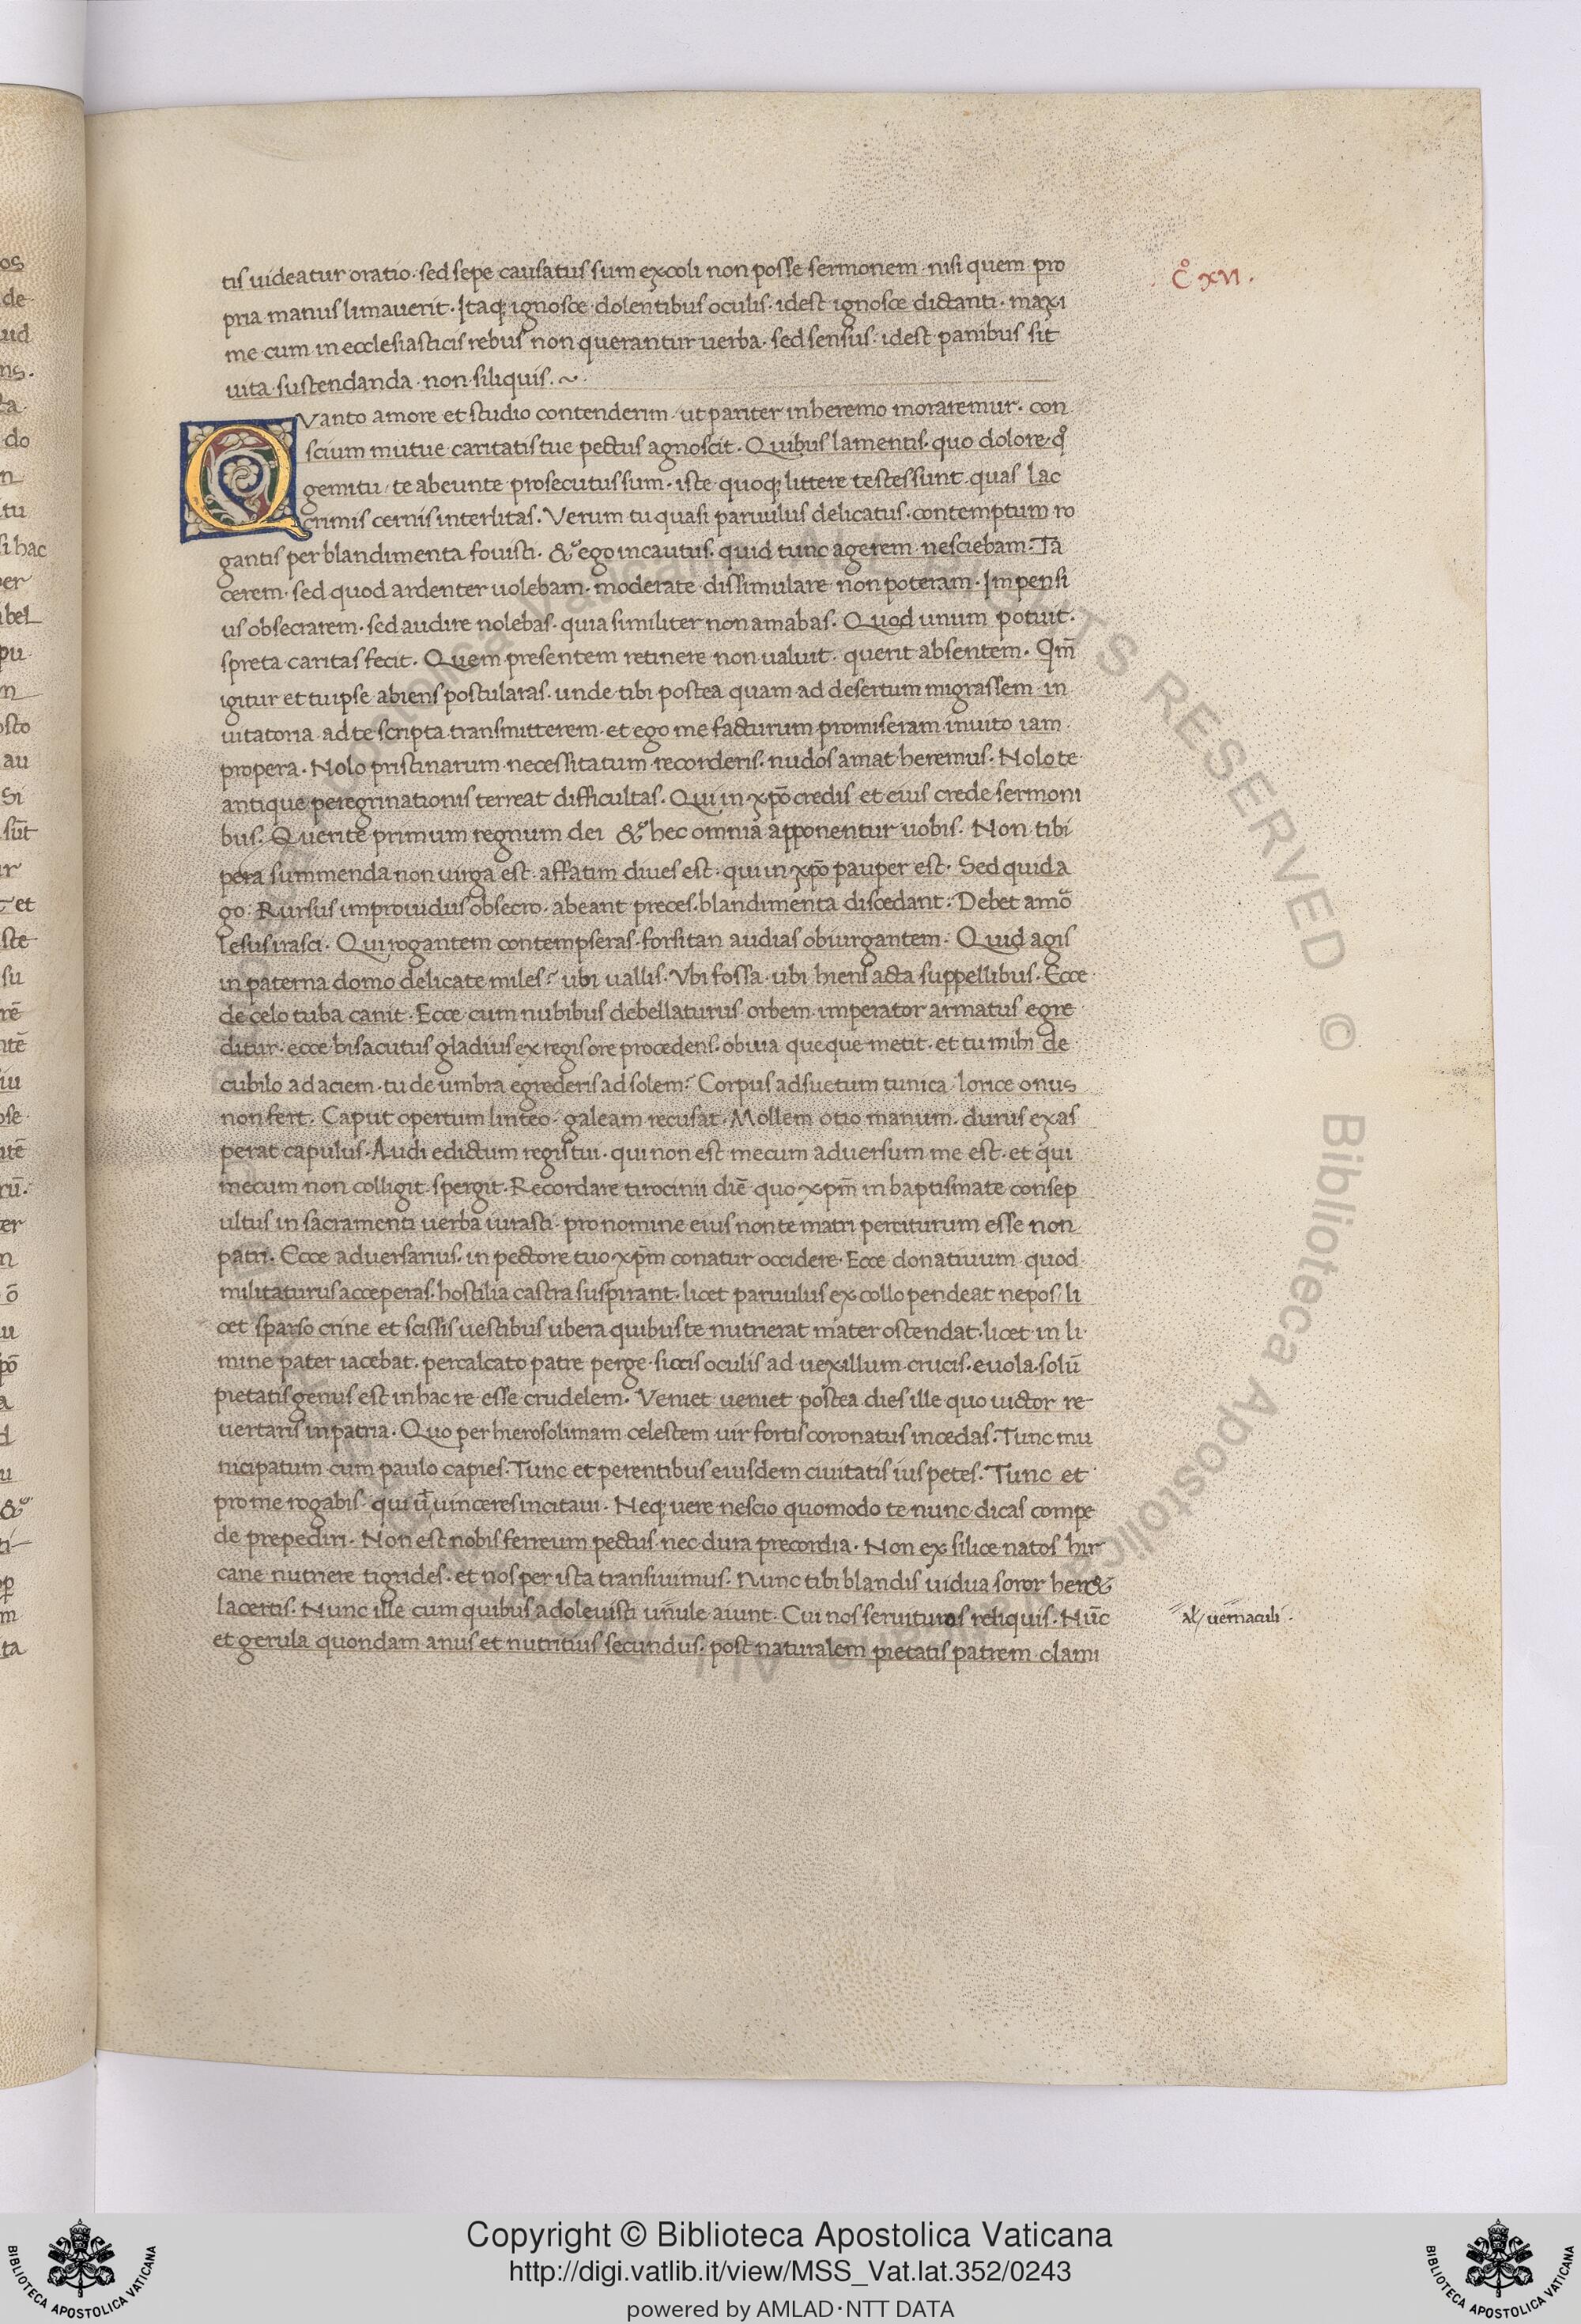 tis uideatur oratio. sed sepe causatus sum excoli non posse sermonem. nisi quem pro
pria manus limauerit. Itaq; ignosce dolentibus oculis. idest ignosce dictanti. maxi
me cum in ecclesiasticis rebus non querantur uerba. sed sensus. idest panibus sit
uita sustendanda non siliquis. ~
Cͦ XVI.
QVanto amore et studio contenderim ut pariter in heremo moraremur. con
scium mutue caritatis tue pectus agnoscit. Quibus lamentis. quo dolore. qͦ
gemitu te abeunte prosecutus sum. iste quoq; littere testes sunt quas lac
crimis cernis interlitas. Verum tu quasi paruulus delicatus. contemptum ro
gantis per blandimenta fouisti. & ego incautus. quid tunc agerem nesciebam. Ta
cerem. sed quod ardenter uolebam. moderate dissimulare non poteram. Impensi
us obsecrarem. sed audire nolebas. quia similiter non amabas. Quod unum potuit.
spreta caritas fecit. Quem presentem retinere non ualuit. querit absentem. Qm̄
igitur et tu ipse abiens postularas. unde tibi postea quam ad desertum migrassem in
uitatoria ad te scripta transmitterem. et ego me facturum promiseram inuito iam
propera. Nolo pristinarum necessitatum recorderis. nudos amat heremus. Nolo te
antique peregrinationis terreat difficultas. Qui in xp̄o credis et eius crede sermoni
bus. Querite primum regnum dei & hec omnia apponentur uobis. Non tibi
pera summenda non uirga est. affatim diues est. qui in xp̄o pauper est. Sed quid a
go. Rursus improuidus obsecro. abeant preces. blandimenta discedant. Debet amor
lesus irasci. Qui rogantem contempseras. forsitan audias obiurgantem. Quid agis
in paterna domo delicate miles? ubi uallis. Vbi fossa. ubi hiens acta sup pellibus. Ecce
de celo tuba canit. Ecce cum nubibus debellaturus orbem imperator armatus egre
ditur. ecce bis acutus gladius ex regis ore procedens. obuia queque metit. et tu mihi de
cubilo ad aciem. tu de umbra egrederis ad solem? Corpus adsuetum tunica lorice onus
non fert. Caput opertum linteo. galeam recusat. Mollem otio manum. durus exas
perat capulus. Audi edictum regis tui. qui non est mecum aduersum me est. et qui
mecum non colligit. spergit. Recordare tirocinii diē quo xpm̄ in baptismate consep
ultus in sacramenti uerba iurasti. pro nomine eius non te matri perciturum esse non
patri. Ecce aduersarius. in pectore tuo xpm̄ conatur occidere. Ecce donatiuum quod
militaturus acceperas. hostilia castra suspirant. licet paruulus ex collo pendeat nepos. li
cet sparso crine et scissis uestibus ubera quibus te nutrierat mater ostendat. licet in li
mine pater iacebat. percalcato patre perge. siccis oculis ad uexillum crucis. euola. solū
pietatis genus est in hac re esse crudelem. Veniet ueniet postea dies ille quo uictor re
uertaris in patria. Quo per hierosolimam celestem uir fortis coronatus incedas. Tunc mu
nicipatum cum paulo capies. Tunc et perentibus eiusdem ciuitatis ius petes. Tunc et
pro me rogabis. qui ut uinceres incitaui. Neq; uere nescio quomodo te nunc dicas compe
de prepediri. Non est nobis ferreum pectus. nec dura precordia. Non ex silice natos hir
cane nutriere tigrides. et nos per ista transiuimus. Nunc tibi blandis uidua soror her&
lacertis. Nunc ille cum quibus adoleuisti un̄ule aiunt. Cui nos seruituros reliquis. Nūc
al/ uernaculi.
et gerula quondam anus et nutritius secundus. post naturalem pietatis patrem clami
Copyright © Biblioteca Apostolica Vaticana
http://digi.vatlib.it/view/MSS_Vat.lat.352/0243
powered by AMLAD · NTT DATA
BIBLIOTECA APOSTOLICA VATICANA
BIBLIOTECA APOSTOLICA VATICANA